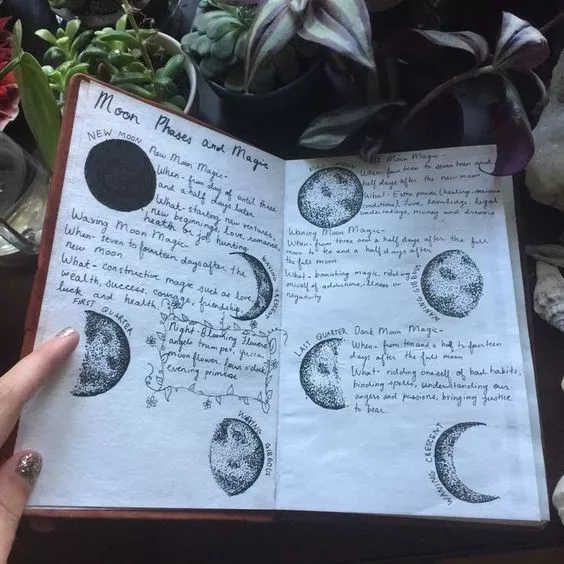 Moon Phases and Magic
NEW MOON
New Moon Magic-
When- from day of until three
and a half days later
What- starting new ventures,
new beginnings, love, romance,
health or job hunting
Waxing Moon Magic-
When- seven to fourteen days after the
new moon
What- constructive magic such as love,
wealth, success, courage, friendship
luck and health
WAXING CRESCENT
FIRST QUARTER
Night-Blooming flowers
angels trumpet, yucca
moon flower, four o'clock
evening primrose
WAXING
GIBBOUS
FULL MOON
Full Moon Magic-
When- fourteen to seventeen and
half days after the new moon
What- Extra power (healing,
conditions), love, knowledge, legal
undertakings, money and dreams
Waning Moon Magic-
When- from three and a half days after the full
moon to ten and a half days after
the full moon
What- banishing magic, ridding
oneself of addictions, illness or
negativity
WANING GIBBOUS
LAST QUARTER
Dark Moon Magic-
When- from ten and a half to fourteen
days after the full moon
What- ridding oneself of bad habits,
binding spells, understanding our
angers and passions, bringing justice
to bear.
WANING CRESCENT